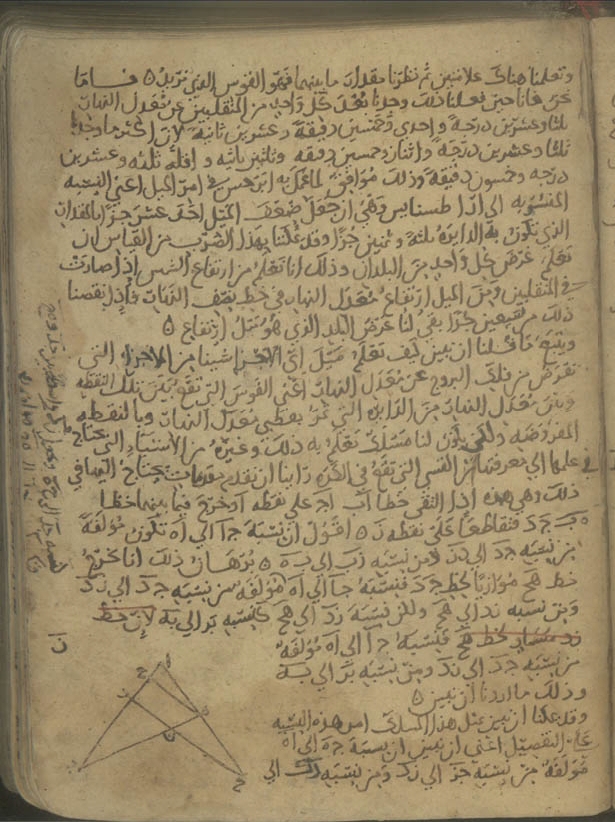 وتعلمنا هناك علامتين ثم نظرنا مقدار ما بينهما فهو القوس الذي نريد ه فاما
نحن فانا حين فعلنا ذلك وجدنا بعد كل واحد من المنقلبين عن معدل النهار
ثلثا وعشرين درجة واحدى وخمسين دقيقة وعشرين ثانية لان اكثر ما وجدنا
ثلثا وعشرين درجة واثنان وخمسين دقيقه وثلثين ثانيه واقله ثلثه وعشرين
درجه وخمسون دقيقة وذلك موافق لما عمل به ابرخس في امر الميل اعني النسبه
المنسوبه الى اراطسثانس وهي ان جعل ضعف الميل احد عشر جزا بالمقدار
الذي تكون به الدايره ثلثة وثمنين جزا وقد يمكننا بهذا الضرب من القياس ان
نعلم عرض كل واحد من البلدان وذلك انا نعلم من ارتفاع الشمس اذا صارت
في المنقلبين ومن الميل ارتفاع معدل النهار في خط نصف النهار فاذا نقصنا
ذلك من تسعين جزا بقي لنا عرض البلد الذي هو مثل ارتفاع ه
ويتبع ما قلنا ان نبين كيف نعلم ميل اي الاجزا شينا من الاجزا التي
تفرض من فلك البروج عن معدل النهار اعني القوس التي تقع بين تلك النقطه
وبين معدل النهار من الدايره التي تمر بقطبي معدل النهار وبالنقطه
المفروضه ولكي يكون لنا مسلك نعلم به ذلك وغيره من الاشياء التي نحتاج
في علمها الى معرفة القسي التي تقع في الكره راينا ان نقدم مقدمات نحتاج اليها في
ذلك وهي هذه اذا التقى خطا اب اج على نقطه ا وخرج فيما بينهما خطا
ه ب ج د فتقاطعا على نقطه ز ه اقول ان نسبة ج ا الى ا ه تكون مولفة
من نسبة ج د الى د ز ومن نسبه ز ب الى ب ه ه برهان ذلك انا نخرج
خط ه ح موازيا لخط ج د فنسبة ج ا الى ا ه مولفه من نسبه ج د الى ز د
ومن نسبه ز د الى ه ح ولكن نسبة ز د الى ه ح كنسبه ب ز الى ب ه لان خط
ز د مساو لخط ه ح فنسبة ج ا الى ا ه مولفه
من نسبة ج د الى ز د ومن نسبه ب ز الى ب ه
وذلك ما اردنا ان نبين ه
وقد يمكننا ان نبين بمثل هذا المسلك امر هذه النسبه
على التفصيل اعني ان نبين ان نسبة ج ه الى ا ه
مولفه من نسبه ج ز الى ز د ومن نسبه د ب الى